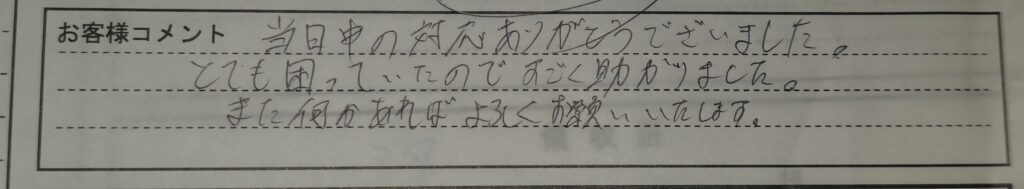 お客様コメント 当日中の対応ありがとうございました。
とても困っていたのですごく助かりました。
また何かあればよろしくお願いいたします。